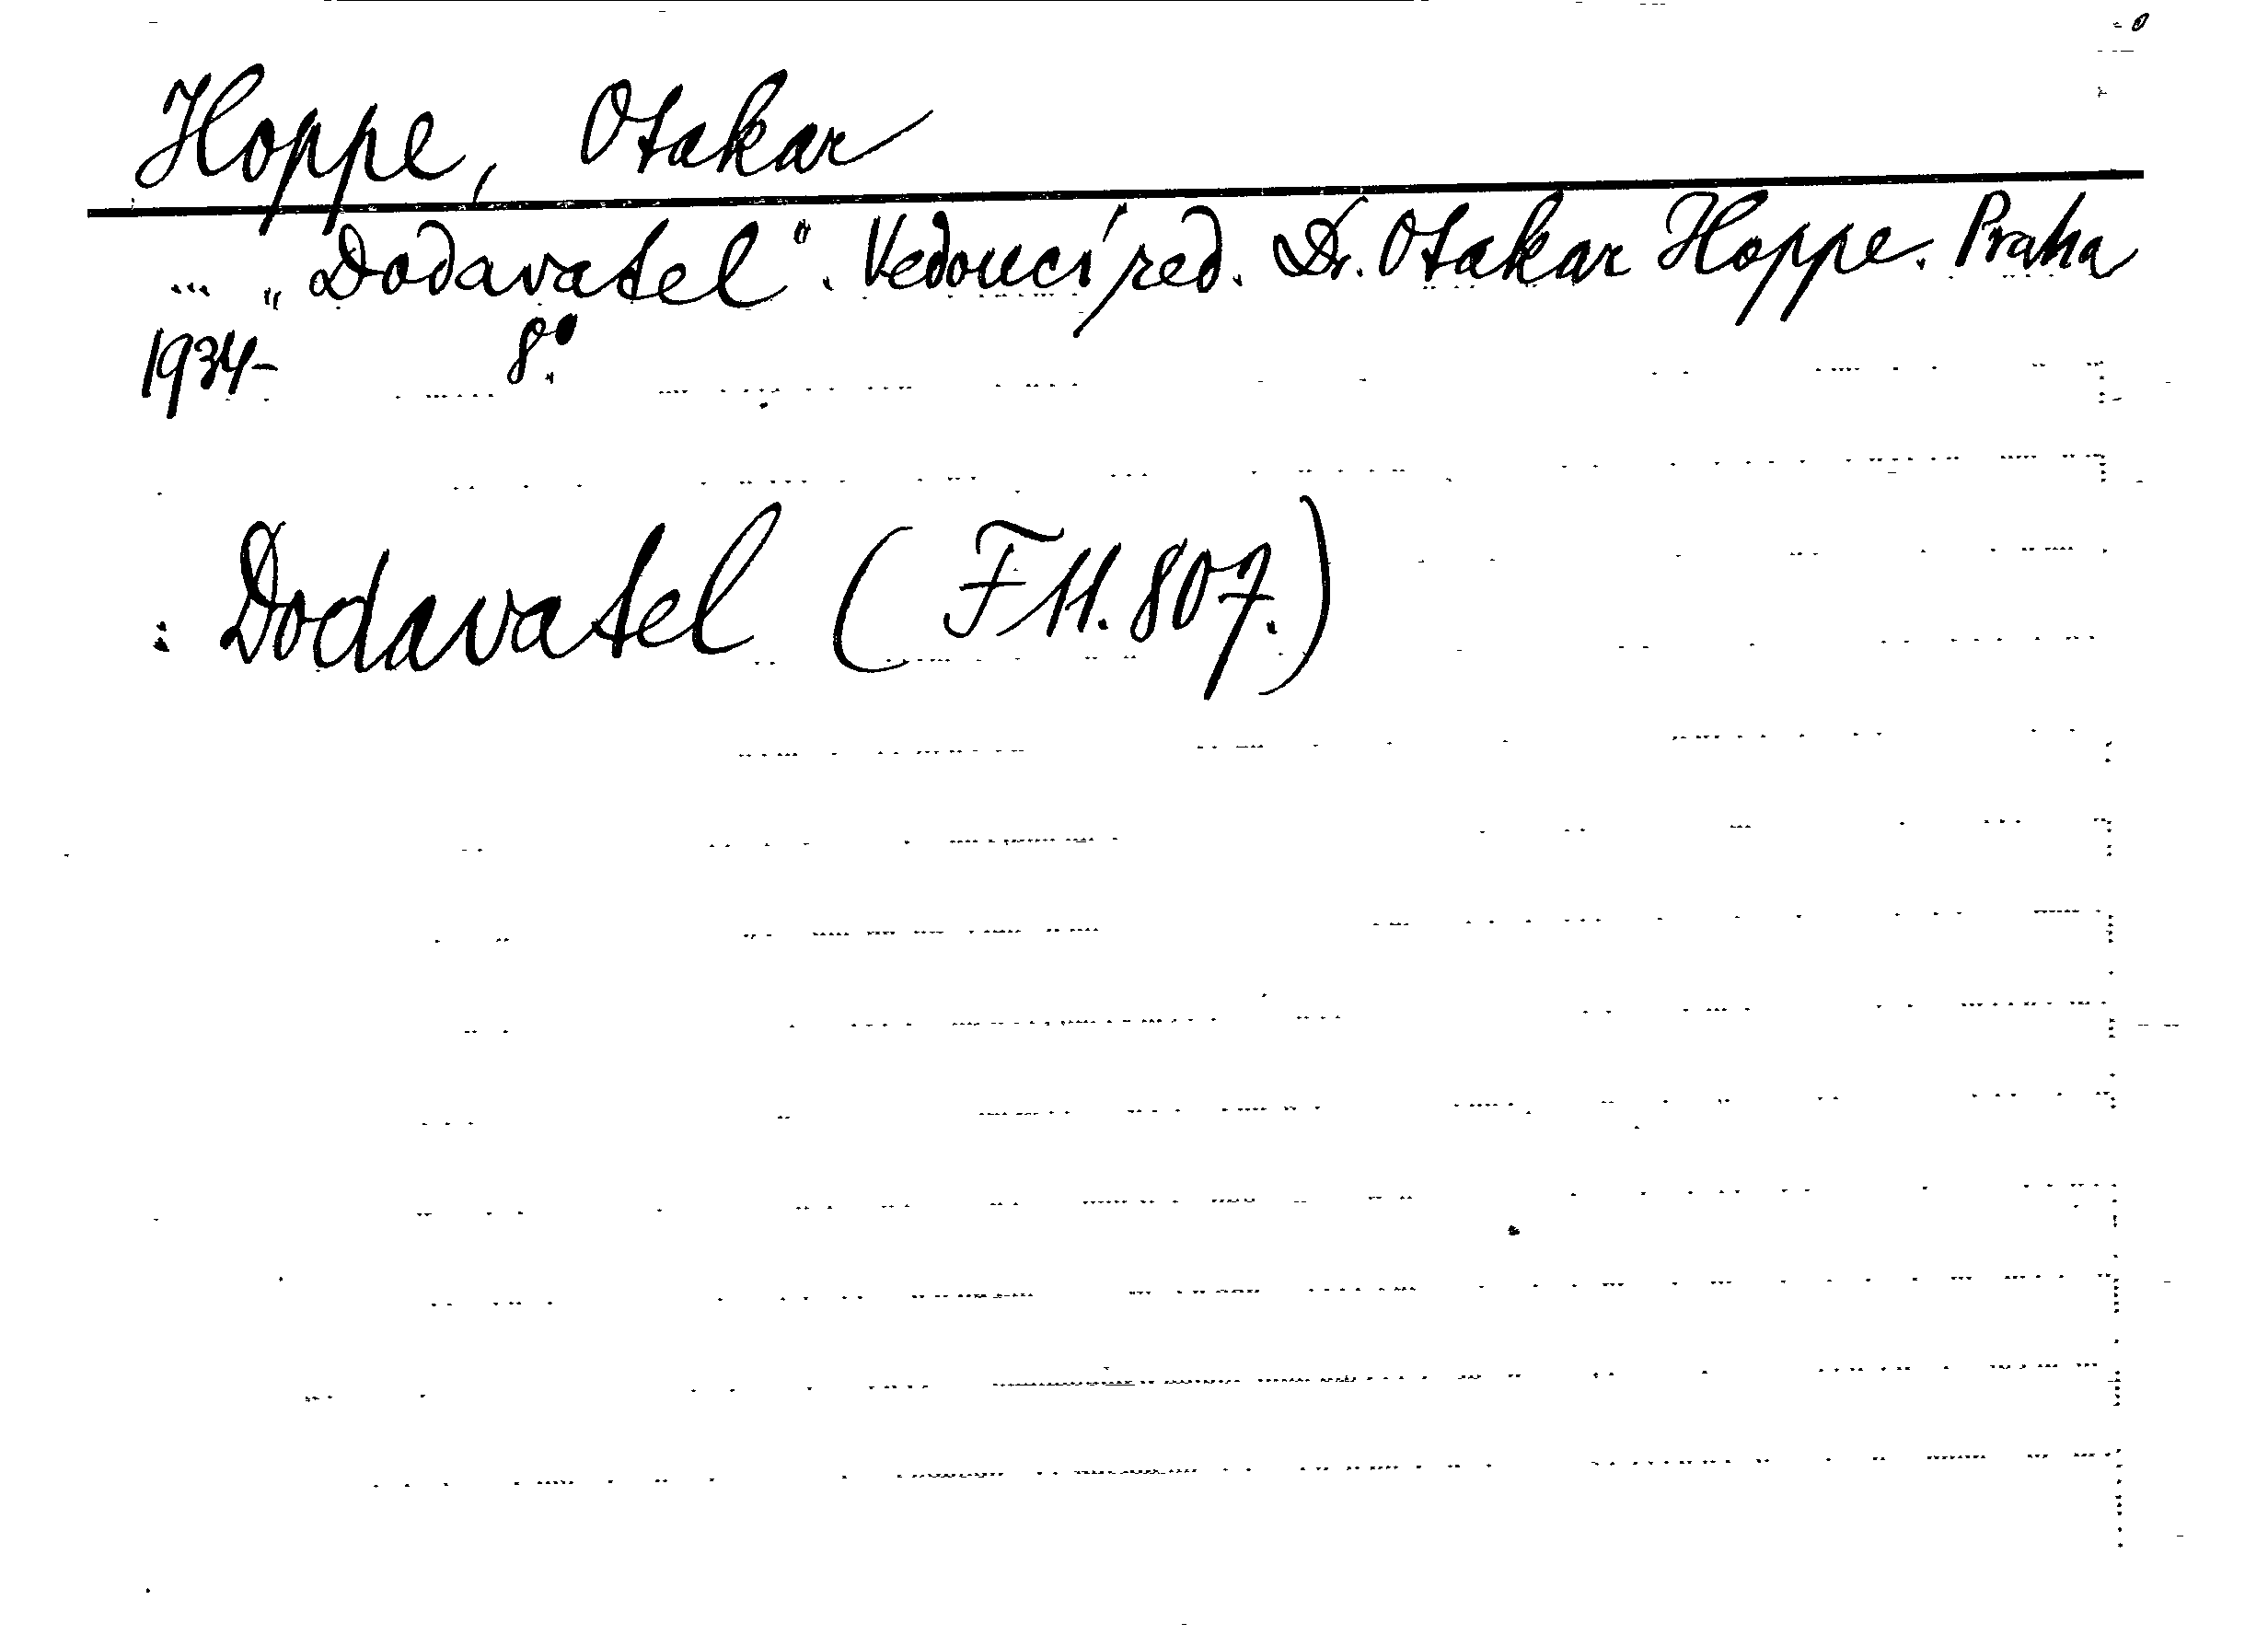 Hoppe, Otakar
... „Dodavatel“. Vedoucí red. Dr. Otakar Hoppe. Praha
1934- 8°.
: Dodavatel (F 11.807.)